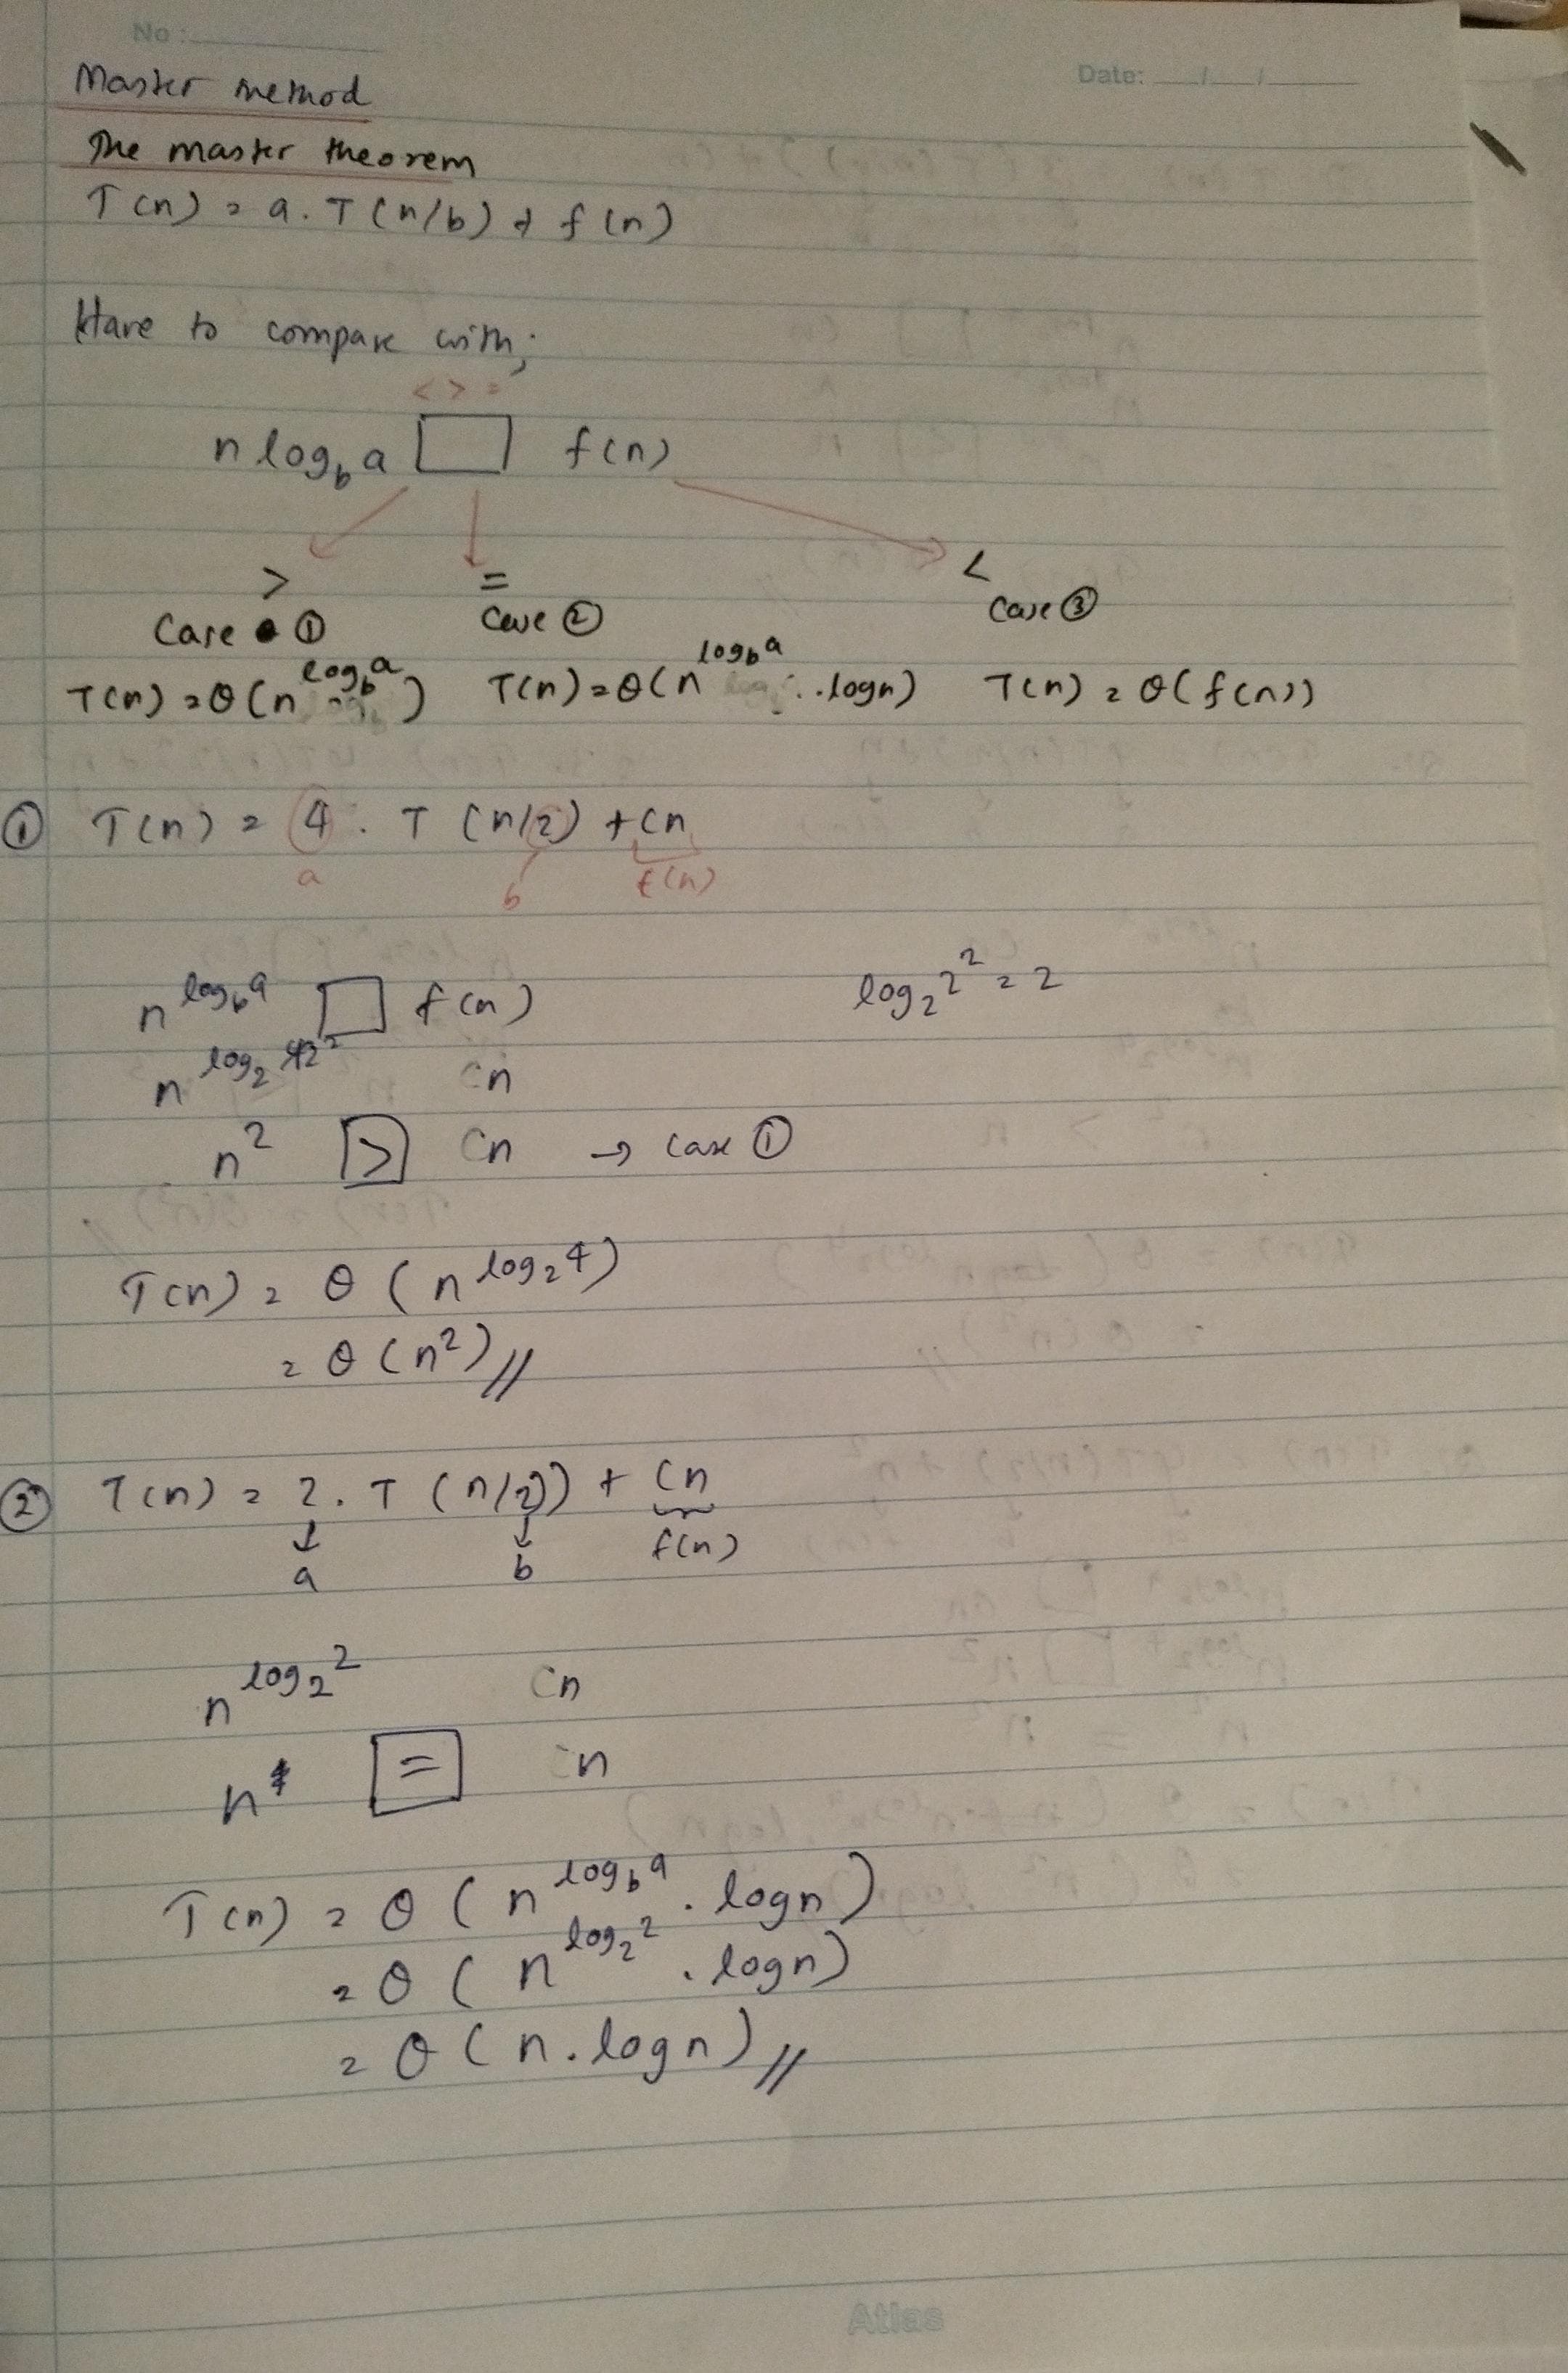 No :
Date: __/__/__
Master method
The master theorem
T(n) = a . T(n/b) + f(n)
Have to compare with;
< > =
n log_b a □ f(n)
> = <
Case ① Case ② Case ③
T(n) = θ(n^{log_b a}) T(n) = θ(n^{log_b a} . logn) T(n) = θ(f(n))
① T(n) = 4 . T (n/2) + Cn
a b f(n)
n^{log_b a} □ f(n) log_2 2^2 = 2
n^{log_2 2^2} Cn
n^2 > Cn → Case ①
T(n) = θ (n^{log_2 4})
= θ (n^2) //
② T(n) = 2 . T (n/2) + Cn
↓ ↓
a b f(n)
n^{log_2 2} Cn
n = Cn
T(n) = θ (n^{log_b a} . logn)
= θ (n^{log_2 2} . logn)
= θ (n . logn) //
Atlas